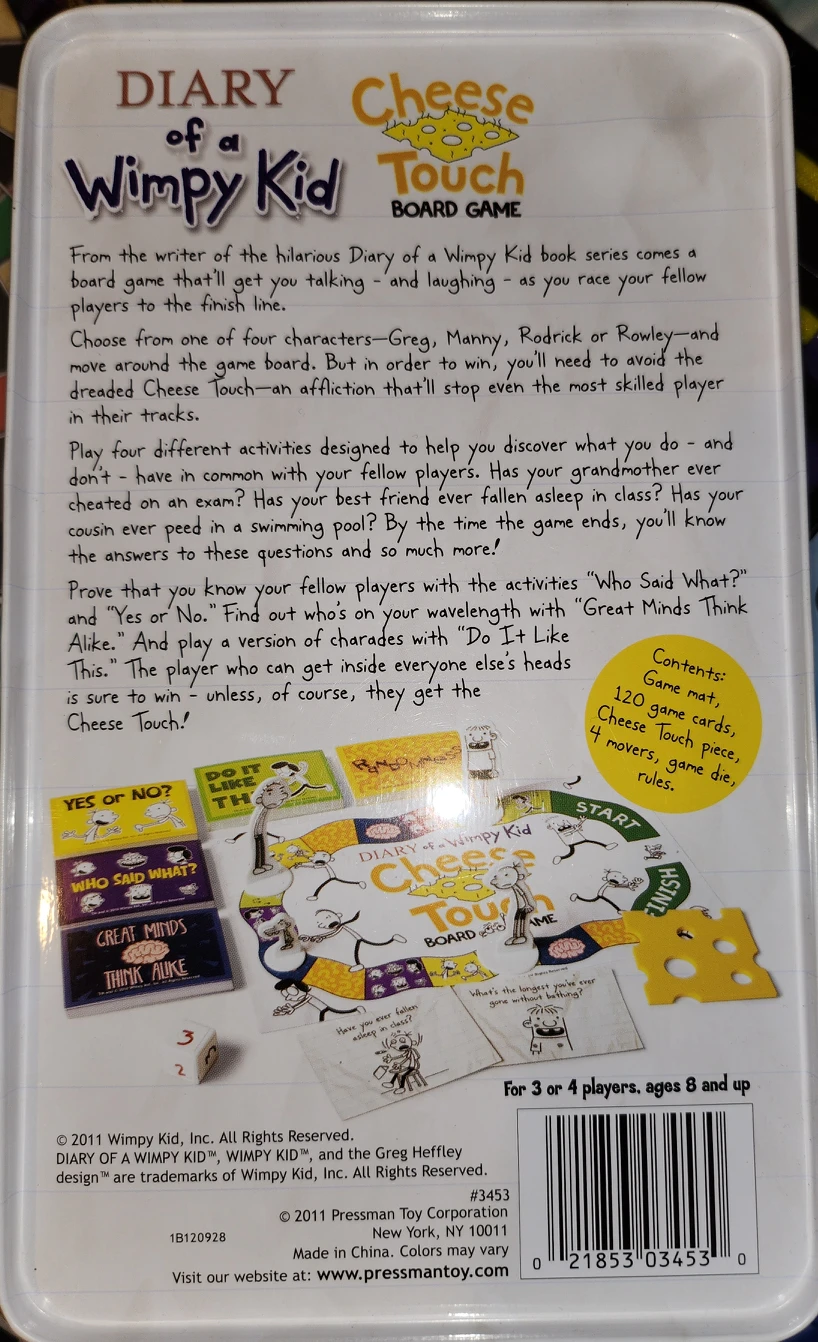 DIARY
of a
Wimpy Kid
Cheese
Touch
BOARD GAME
From the writer of the hilarious Diary of a Wimpy Kid book series comes a
board game that'll get you talking - and laughing - as you race your fellow
players to the finish line.
Choose from one of four characters—Greg, Manny, Rodrick or Rowley—and
move around the game board. But in order to win, you'll need to avoid the
dreaded Cheese Touch—an affliction that'll stop even the most skilled player
in their tracks.
Play four different activities designed to help you discover what you do - and
don't - have in common with your fellow players. Has your grandmother ever
cheated on an exam? Has your best friend ever fallen asleep in class? Has your
cousin ever peed in a swimming pool? By the time the game ends, you'll know
the answers to these questions and so much more!
Prove that you know your fellow players with the activities "Who Said What?"
and "Yes or No." Find out who's on your wavelength with "Great Minds Think
Alike." And play a version of charades with "Do It Like
This." The player who can get inside everyone else's heads
is sure to win - unless, of course, they get the
Cheese Touch!
Contents:
Game mat,
120 game cards,
Cheese Touch piece,
4 movers, game die,
rules.
YES or NO?
DO IT
LIKE
TH
WHO SAID WHAT?
GREAT MINDS
THINK ALIKE
START
FINISH
DIARY of a Wimpy Kid
Cheese
Touch
BOARD GAME
Have you ever fallen
asleep in class?
What's the longest you've ever
gone without bathing?
3
2
For 3 or 4 players, ages 8 and up
© 2011 Wimpy Kid, Inc. All Rights Reserved.
DIARY OF A WIMPY KID™, WIMPY KID™, and the Greg Heffley
design™ are trademarks of Wimpy Kid, Inc. All Rights Reserved.
#3453
© 2011 Pressman Toy Corporation
1B120928
New York, NY 10011
Made in China. Colors may vary
Visit our website at: www.pressmantoy.com
0 21853 03453 0